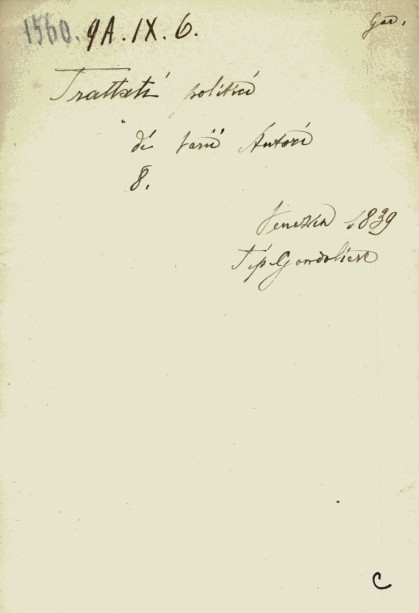 1560. 9A.IX.6. Gae.
Trattati politici
di varii Autori
8.
Venezia 1839
Tip. Gondoliere
C